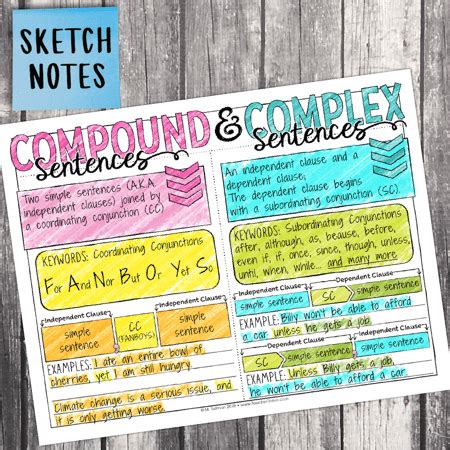 SKETCH
NOTES
COMPOUND
Sentences
&
COMPLEX
Sentences
Two simple sentences (A.K.A.
independent clauses) joined by
a coordinating conjunction (CC)
KEYWORDS: Coordinating Conjunctions
For And Nor But Or Yet So
Independent Clause
Independent Clause
simple
sentence
CC
(FANBOYS)
simple
sentence
EXAMPLES: I ate an entire bowl of
cherries, yet I am still hungry.
Climate change is a serious issue, and
it is only getting worse.
An independent clause and a
dependent clause;
The dependent clause begins
with a subordinating conjunction (SC).
KEYWORDS: Subordinating Conjunctions
after, although, as, because, before,
even if, if, once, since, though, unless,
until, when, while... and many more
Independent Clause
Dependent Clause
simple sentence
SC
simple sentence
EXAMPLE: Billy won't be able to afford
a car unless he gets a job.
Dependent Clause
Independent Clause
SC
simple sentence
simple
sentence
EXAMPLE: Unless Billy gets a job,
he won't be able to afford a car.